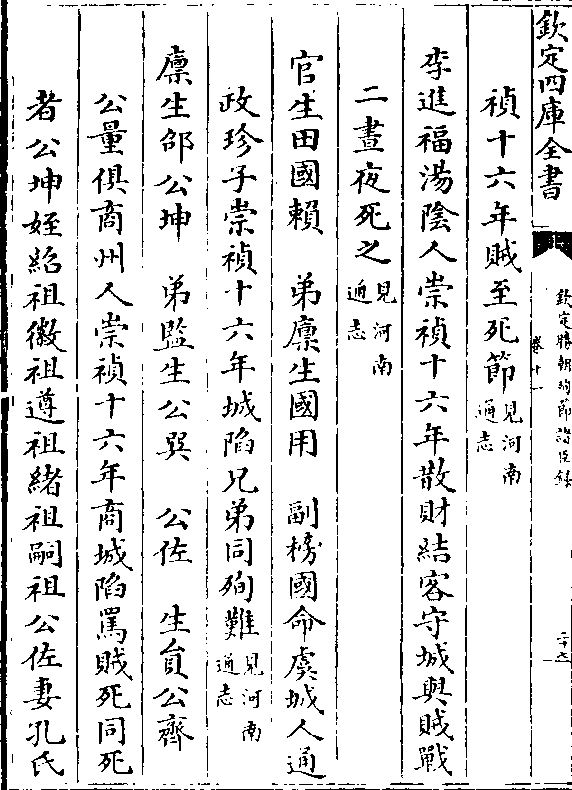 欽定四庫全書
欽定勝朝殉節諸臣錄
卷十一
二十六
禎十六年賊至死節見河南通志
李進福湯陰人崇禎十六年散財結客守城與賊戰
二晝夜死之見河南通志
官生田國賴　弟廪生國用　副榜國命虞城人通
政珍子崇禎十六年城陷兄弟同殉難見河南通志
廪生邵公坤　弟監生公巽　公佐　生員公齊
公量俱商州人崇禎十六年商城陷罵賊死同死
者公坤姪紹祖徽祖遵祖緒祖嗣祖公佐妻孔氏